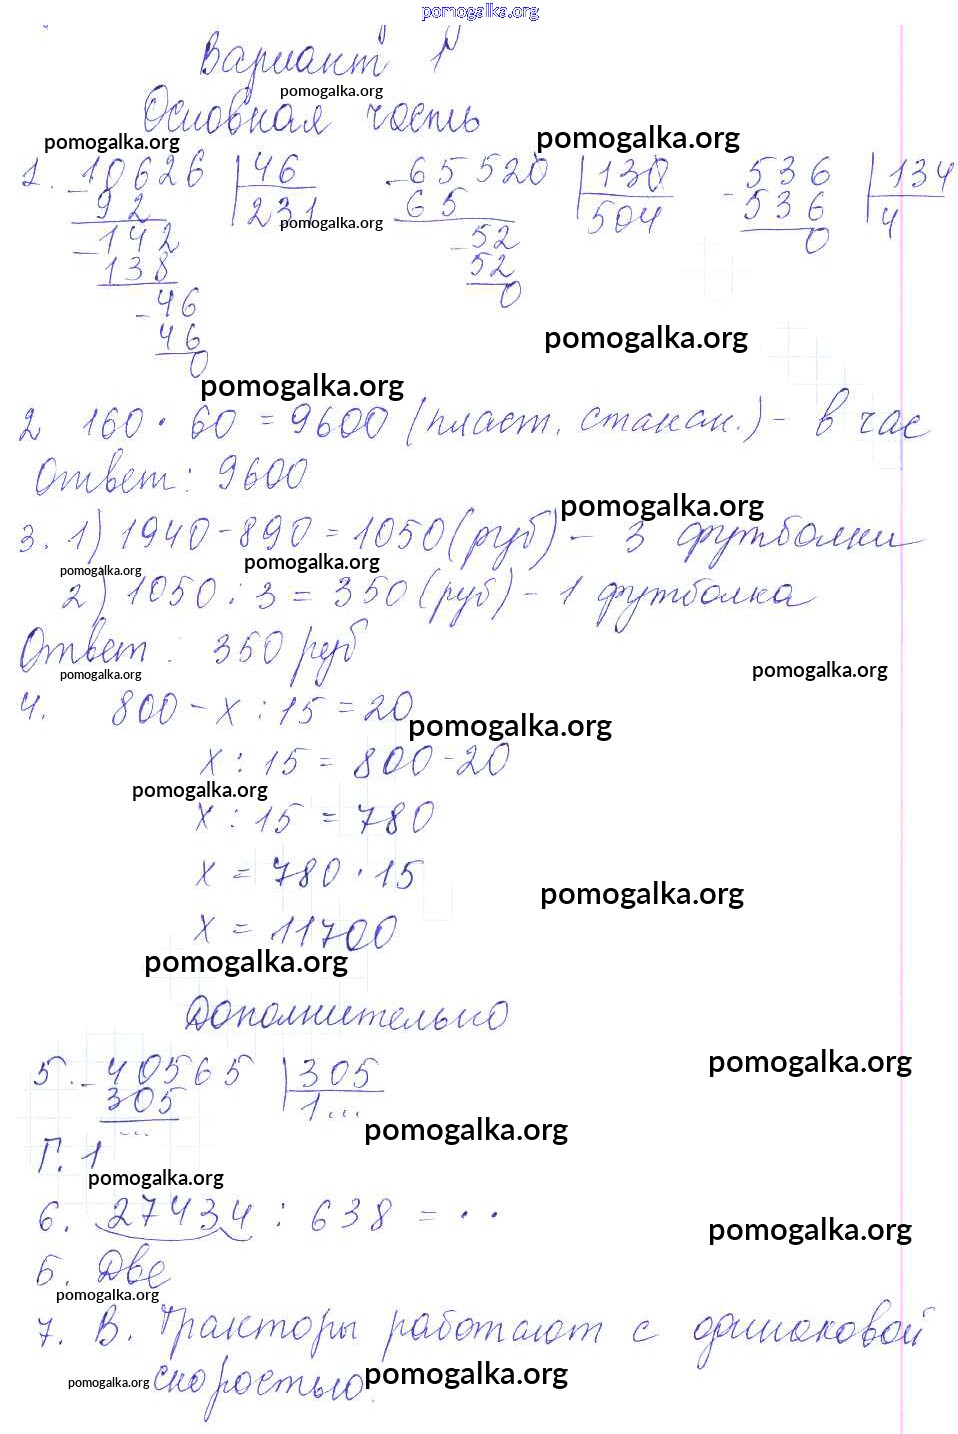 pomogalka.org
Вариант 1
pomogalka.org
Основная часть
pomogalka.org pomogalka.org
1. - 10626 | 46 - 65520 | 130 - 536 | 134
92 231 65 504 536 4
pomogalka.org
- 142 - 52 0
138 52
- 46 0
46
0
pomogalka.org
pomogalka.org
2 160 · 60 = 9600 (пласт. стакан.) - в час
Ответ: 9600
pomogalka.org
3. 1) 1940 - 890 = 1050 (руб) - 3 футболки
pomogalka.org pomogalka.org
2) 1050 : 3 = 350 (руб) - 1 футболка
Ответ: 350 руб
pomogalka.org pomogalka.org
4. 800 - x : 15 = 20
pomogalka.org
x : 15 = 800 - 20
pomogalka.org
x : 15 = 780
x = 780 · 15
pomogalka.org
x = 11700
pomogalka.org
Дополнительно
pomogalka.org
5. - 40565 | 305
305 1...
...
pomogalka.org
Г. 1
pomogalka.org
6. 27434 : 638 = · ·
pomogalka.org
Б. Две
pomogalka.org
7. В. Тракторы работают с одинаковой
pomogalka.org скоростью. pomogalka.org